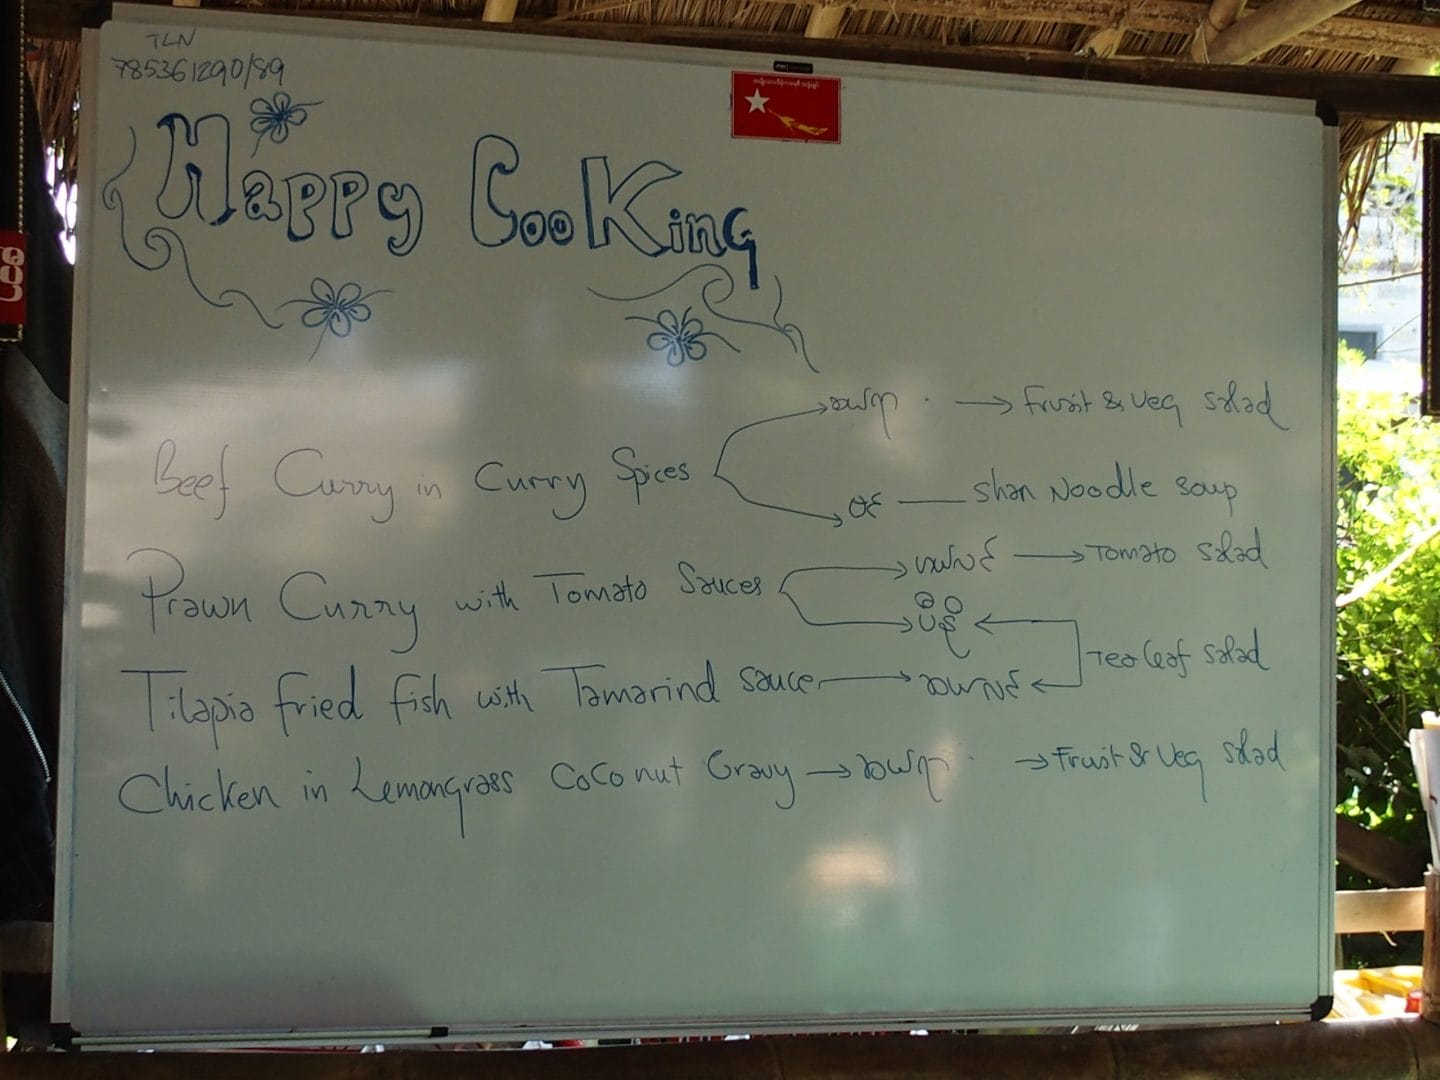 TLN
785361290/89
Happy Cooking
Fruit & Veg Salad
Beef Curry in Curry Spices
Shan Noodle Soup
Prawn Curry with Tomato Sauces
Tomato Salad
Tilapia fried fish with Tamarind Sauce
Tea leaf Salad
Chicken in Lemongrass Coconut Gravy
Fruit & Veg Salad